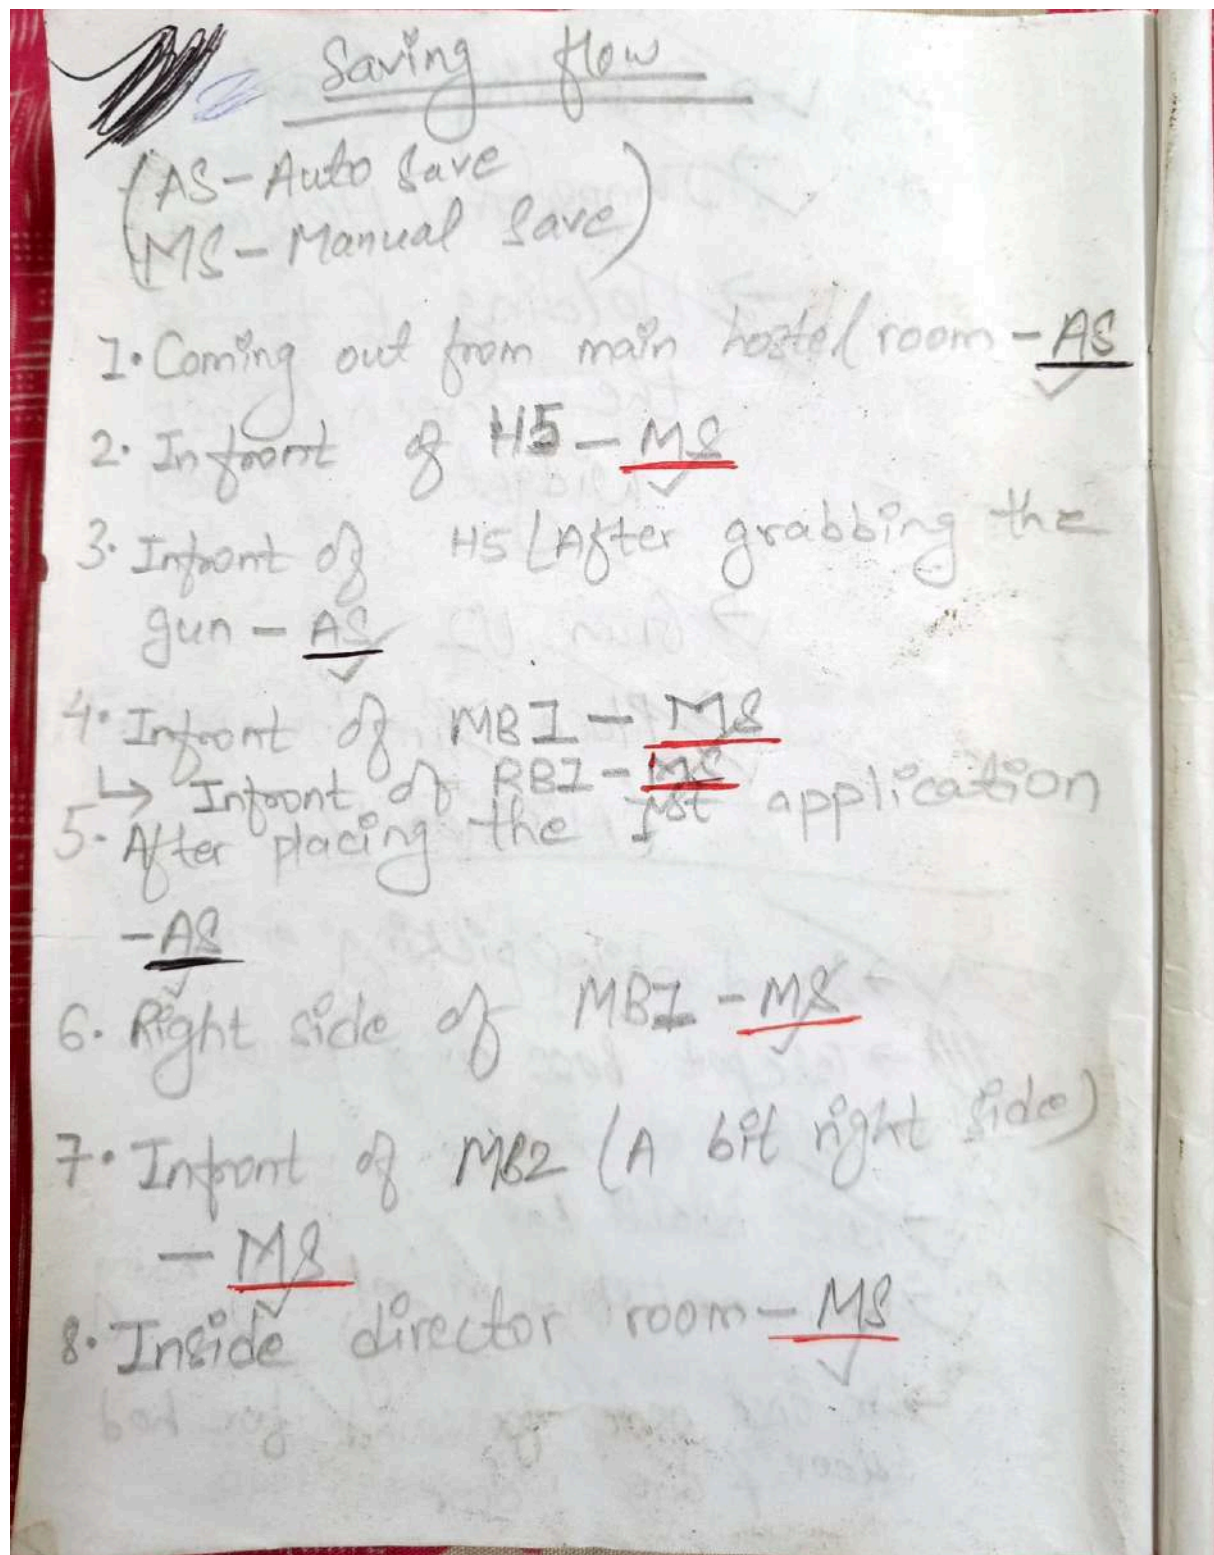 Saving flow
(AS - Auto Save
MS - Manual Save)
1. Coming out from main hostel room - AS
2. Infront of H5 - MS
3. Infront of H5 (After grabbing the
gun - AS
4. Infront of MB1 - MS
↳ Infront of RB1 - MS
5. After placing the 1st application
- AS
6. Right side of MB1 - MS
7. Infront of MB2 (A bit right side)
- MS
8. Inside director room - MS